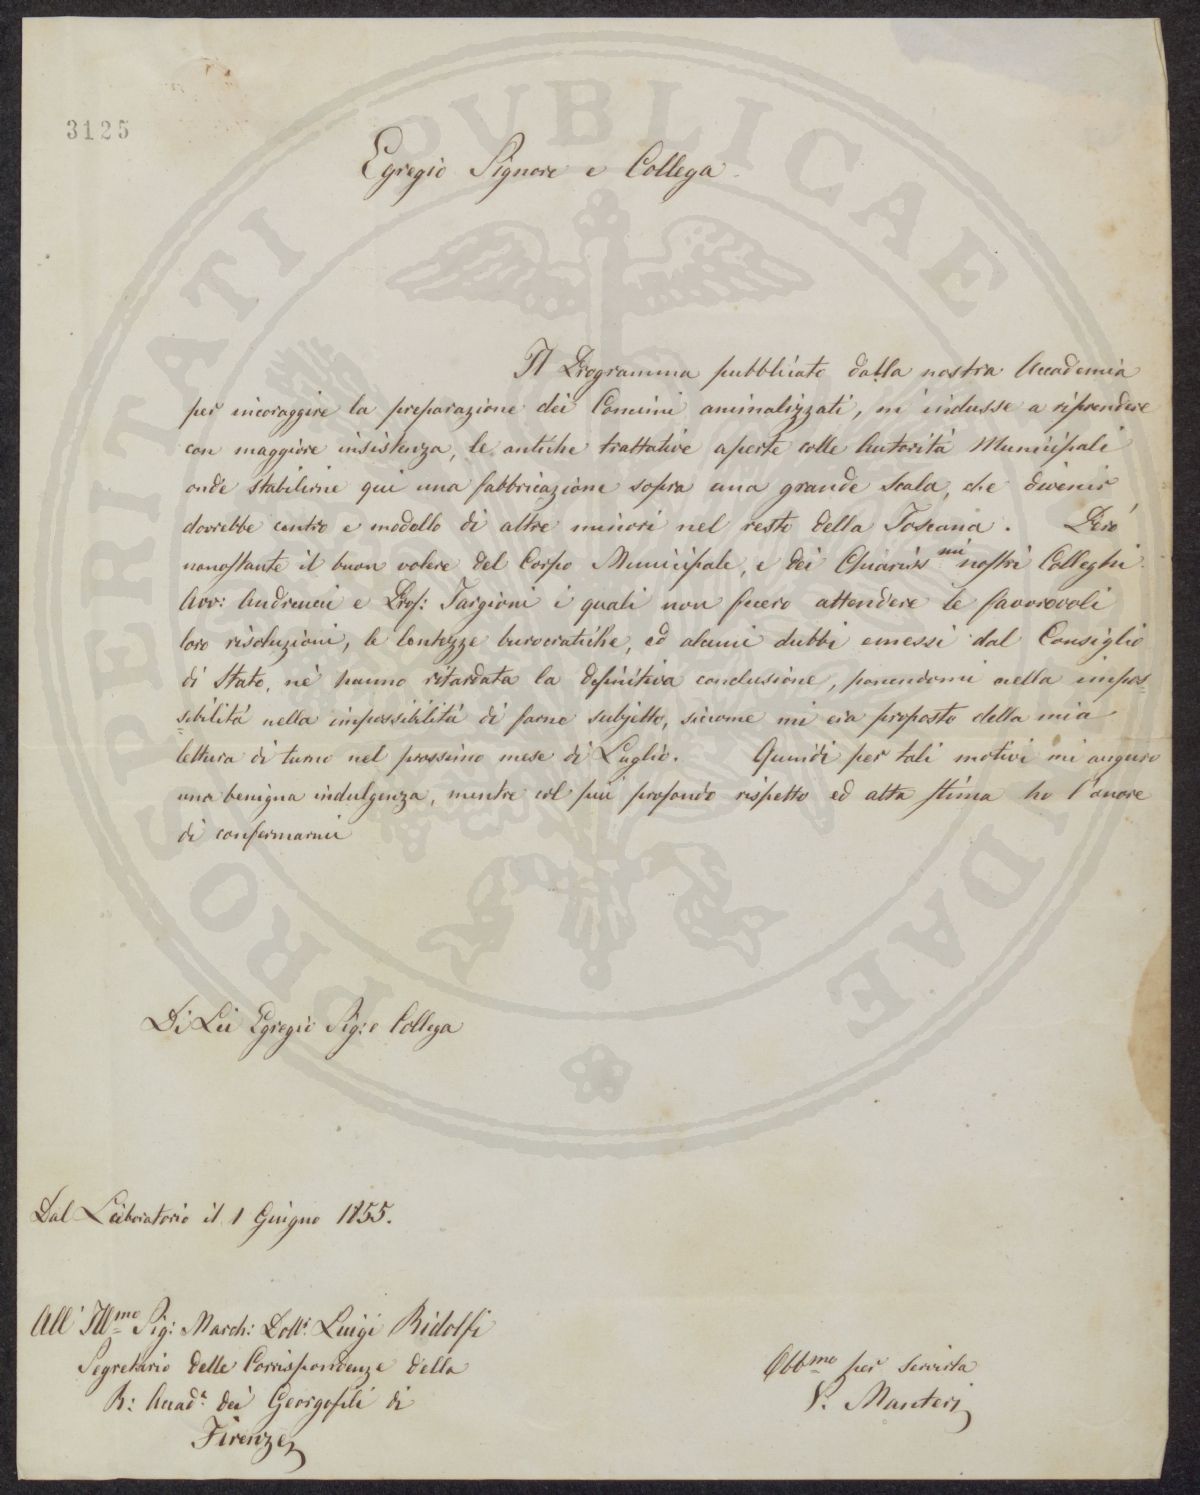 3125
Egregio Signore e Collega
Il Programma pubblicato dalla nostra Accademia
per incoraggire la preparazione dei Concimi animalizzati, m'indusse a riprendere
con maggiore insistenza, le antiche trattative aperte colle Autorità Municipali
onde stabilirne qui una fabbricazione sopra una grande scala, che divenir
dovrebbe centro e modello di altre minori nel resto della Toscana. Però
nonostante il buon volere del Corpo Municipale, e dei Chiariss mi nostri Colleghi
Avv: Andreucci e Prof: Targioni i quali non fecero attendere le favorevoli
loro risoluzioni, le lentezze burocratiche, ed alcuni dubbi emessi dal Consiglio
di Stato, nè hanno ritardata la definitiva conclusione, ponendomi nella impos=
=sibilità nella impossibilità di farne subjetto, siccome mi era proposto della mia
lettura di turno nel prossimo mese di Luglio. Quindi per tali motivi mi auguro
una benigna indulgenza, mentre col più profondo rispetto ed alta stima ho l'onore
di confermarmi
Di Lei Egregio Sig: e Collega
Dal Laboratorio il 1 Giugno 1855.
All' Ill.mo Sig: March: Dott: Luigi Ridolfi
Segretario delle Corrispondenze della
R: Accad.a dei Georgofili di
Firenze
Obb.mo per servirla
V. Manteri
PROSPERITATI PUBLICAE